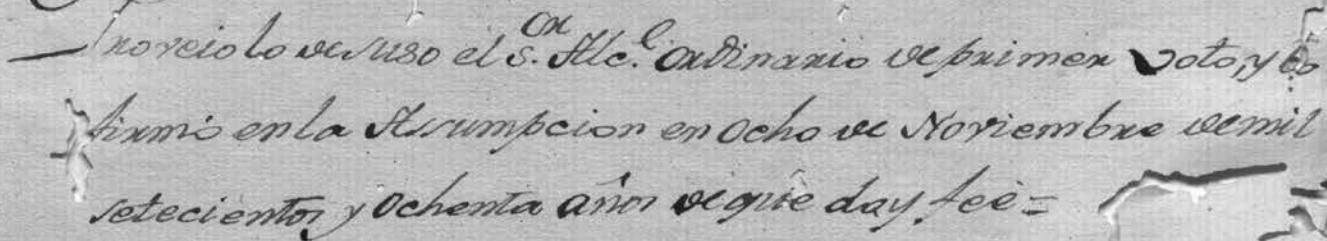 Proveio lo de suso el S.or Alc.e ordinario de primer Voto, y lo
firmó en la Assumpcion en ocho de Noviembre de mil
setecientos y ochenta años de que doy feè=